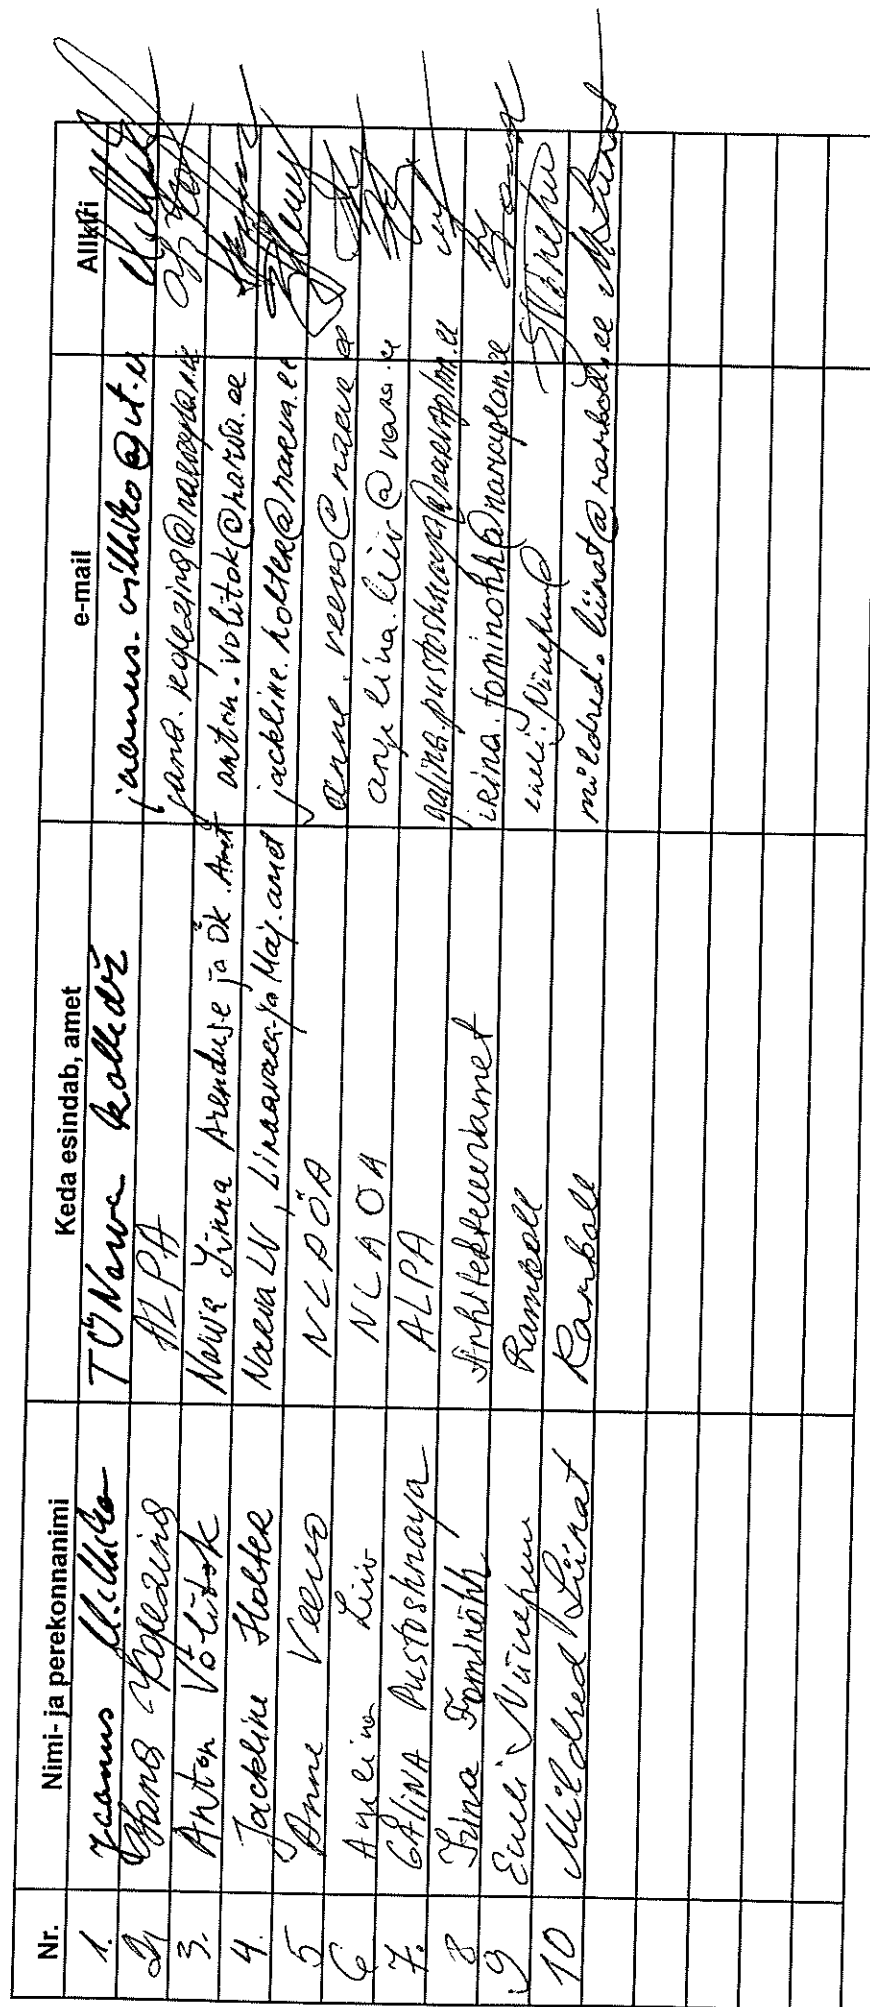 Nr. Nimi- ja perekonnanimi Keda esindab, amet e-mail Allkiri
1. Jaanus Villiko TÜ Narva kolledž jaanus.villiko@ut.ee
2 ALPA
3. Anton Võlitok Narva Linna Arenduse ja Ök. Amet anton.volitok@narva.ee
4. Jackline Holter Narva LV, Linnavara- ja Maj. amet jackline.holter@narva.ee
5 Anne Veevo NLAÖA anne.veevo@narva.ee
6 Angelina Liiv NLAOA angelina.liiv@narva.ee
7. GALINA Pustoshnaya ALPA galina.pustoshnaya@narvaplan.ee
8 Irina Fominõhh Arhitektuuriamet irina.fominohh@narvaplan.ee
9 Eneli Niinepuu Ramboll eneli.niinepuu@
10 Mildred Liinat Ramboll mildred.liinat@ramboll.ee MLiinat